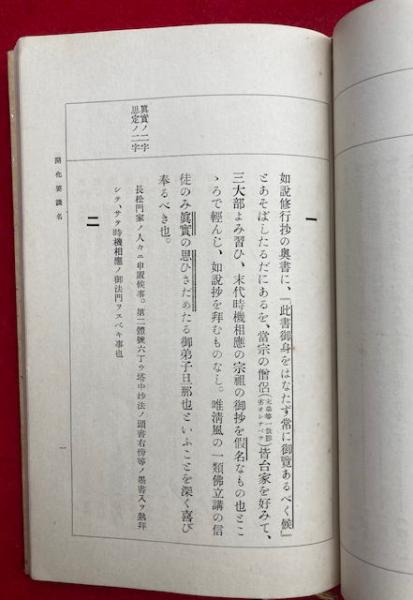 眞實ノ二字
思定ノ二字
一
如說修行抄の奧書に、「此書御身をはなたず常に御覽あるべく候」
とあそばしたるだにあるを、當宗の僧侶皆台家を好みて、
三大部よみ習ひ、末代時機相應の宗祖の御抄を假名なもの也とこ
ゝろで輕んじ、如說抄を拜むものなし。唯淸風の一類佛立講の信
徒のみ眞實の思ひさだめたる御弟子旦那也といふことを深く喜び
奉るべき也。
長松門家ノ人々ニ申置候事。第二體號六丁ウ塔中抄法ノ頭書右傍等ノ墨書入ヲ熟拜
シテ、サテ時機相應ノ御法門ヲスベキ事也
二
開化要談 名
一